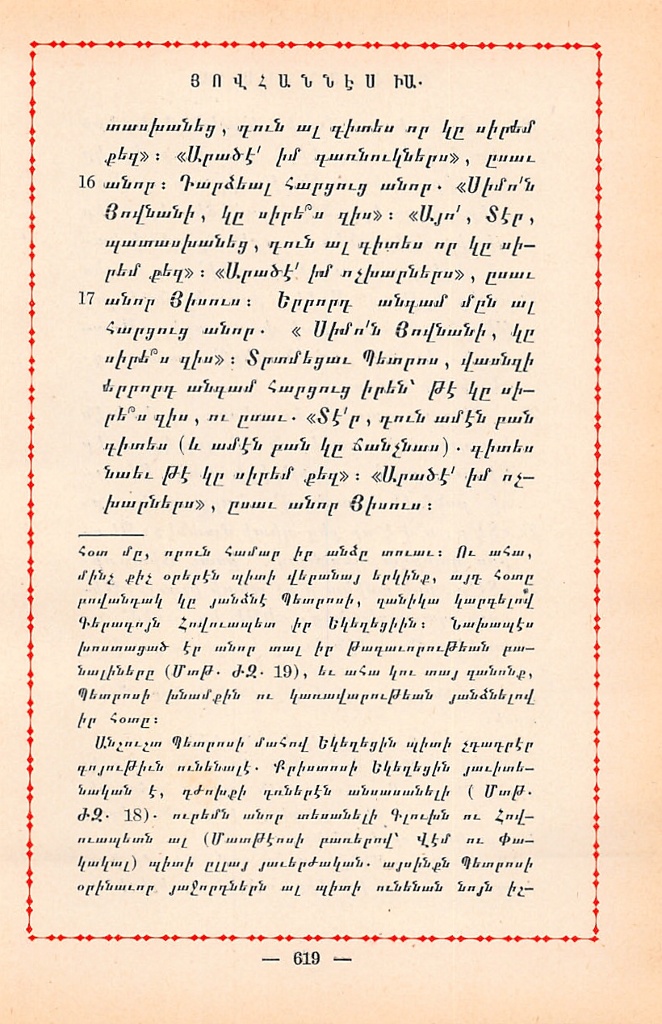 ՅՈՎՀԱՆՆԷՍ ԻԱ.
տասխանեց, դուն ալ գիտես որ կը սիրեմ
քեզ»։ «Արածէ՛ իմ գառնուկներս», ըսաւ
16 անոր։ Դարձեալ հարցուց անոր. «Սիմո՛ն
Յովնանի, կը սիրե՞ս զիս»։ «Այո՛, Տէր,
պատասխանեց, դուն ալ գիտես որ կը սի–
րեմ քեզ»։ «Արածէ՛ իմ ոչխարներս», ըսաւ
17 անոր Յիսուս։ Երրորդ անգամ մըն ալ
հարցուց անոր. « Սիմո՛ն Յովնանի, կը
սիրե՞ս զիս»։ Տրտմեցաւ Պետրոս, վասնզի
երրորդ անգամ հարցուց իրեն՝ թէ կը սի–
րե՞ս զիս, ու ըսաւ. «Տէ՛ր, դուն ամէն բան
գիտես (և ամէն բան կը ճանչնաս). գիտես
նաեւ թէ կը սիրեմ քեզ»։ «Արածէ՛ իմ ոչ–
խարներս», ըսաւ անոր Յիսուս։
հօտ մը, որուն համար իր անձը տուաւ։ Ու ահա,
մինչ քիչ օրերէն պիտի վերանայ երկինք, այդ հօտը
բովանդակ կը յանձնէ Պետրոսի, զանիկա կարգելով
Գերագոյն Հովուապետ իր Եկեղեցիին։ Նախապէս
խոստացած էր անոր տալ իր թագաւորութեան բա–
նալիները (Մտթ. ԺԶ. 19), եւ ահա կու տայ զանոնք,
Պետրոսի խնամքին ու կառավարութեան յանձնելով
իր հօտը։
Անշուշտ Պետրոսի մահով Եկեղեցին պիտի չդադրէր
գոյութիւն ունենալէ. Քրիստոսի Եկեղեցին յաւիտե–
նական է, դժոխքի դռներէն անսասանելի ( Մտթ.
ԺԶ. 18). ուրեմն անոր տեսանելի Գլուխն ու Հով–
ուապետն ալ (Մատթէոսի բառերով՝ Վէմ ու Փա–
կակալ) պիտի ըլլայ յաւերժական. այսինքն Պետրոսի
օրինաւոր յաջորդներն ալ պիտի ունենան նոյն իշ–
— 619 —